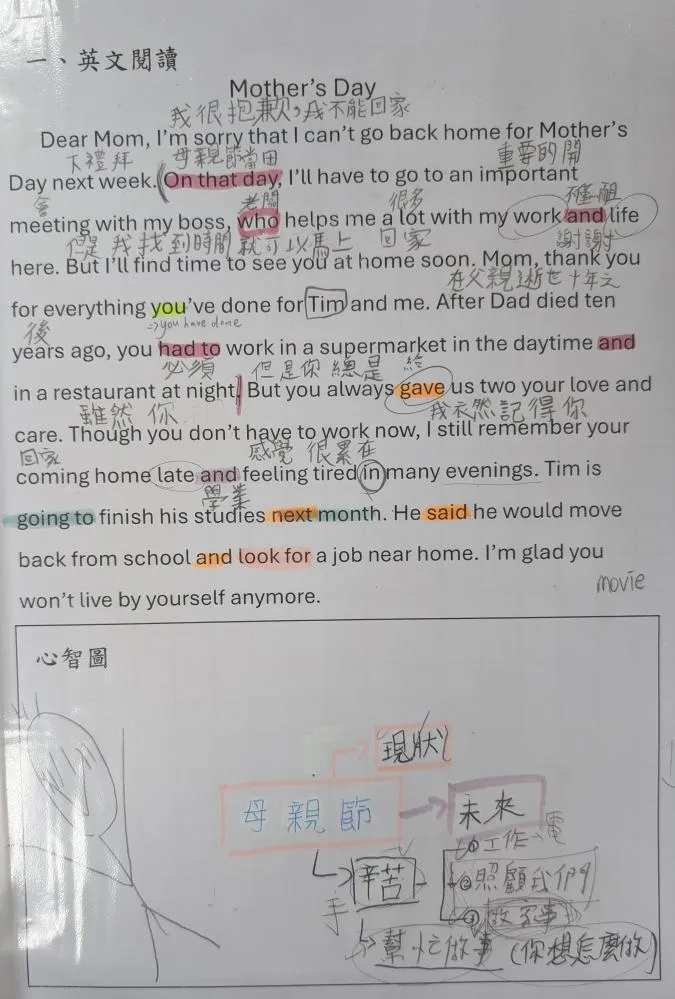 一、英文閱讀
Mother's Day
我很抱歉，我不能回家
Dear Mom, I'm sorry that I can't go back home for Mother's
下禮拜 母親節當田 重要的開
Day next week. On that day, I'll have to go to an important
會 老闆 很多
meeting with my boss, who helps me a lot with my work and life
但是 我找到時間就可以馬上 回家 謝謝
here. But I'll find time to see you at home soon. Mom, thank you
在父親逝世十年之
for everything you've done for Tim and me. After Dad died ten
後 =>you have done
years ago, you had to work in a supermarket in the daytime and
必須 但是你總是 給
in a restaurant at night. But you always gave us two your love and
雖然 你 我衣然記得你
care. Though you don't have to work now, I still remember your
回家 感覺 很累在
coming home late and feeling tired in many evenings. Tim is
學業
going to finish his studies next month. He said he would move
back from school and look for a job near home. I'm glad you
movie
won't live by yourself anymore.
心智圖
現狀
母親節 未來
①工作→電
辛苦 ②照顧我們
手 ③做家事
幫忙做事 (你想怎麼做)